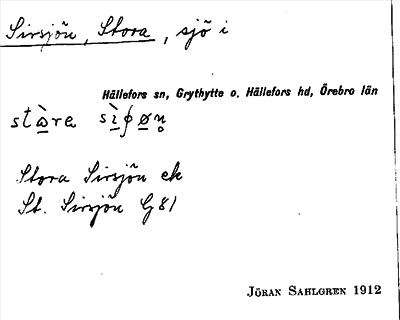 Sirsjön, Stora, sjö i
Hällefors sn, Grythytte o. Hällefors hd, Örebro län
Stora Sirsjön ek
St. Sirsjön G81
JÖRAN SAHLGREN 1912